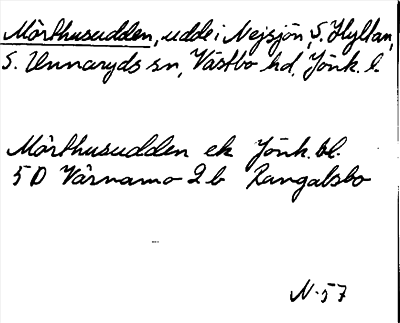 Mörthusudden, udde i Nejsjön, S. Hyltan,
S. Unnaryds sn, Västbo hd, Jönk. l.
Mörthusudden ek Jönk. bl.
5 D Värnamo 2 b Rangalsbo
N-57